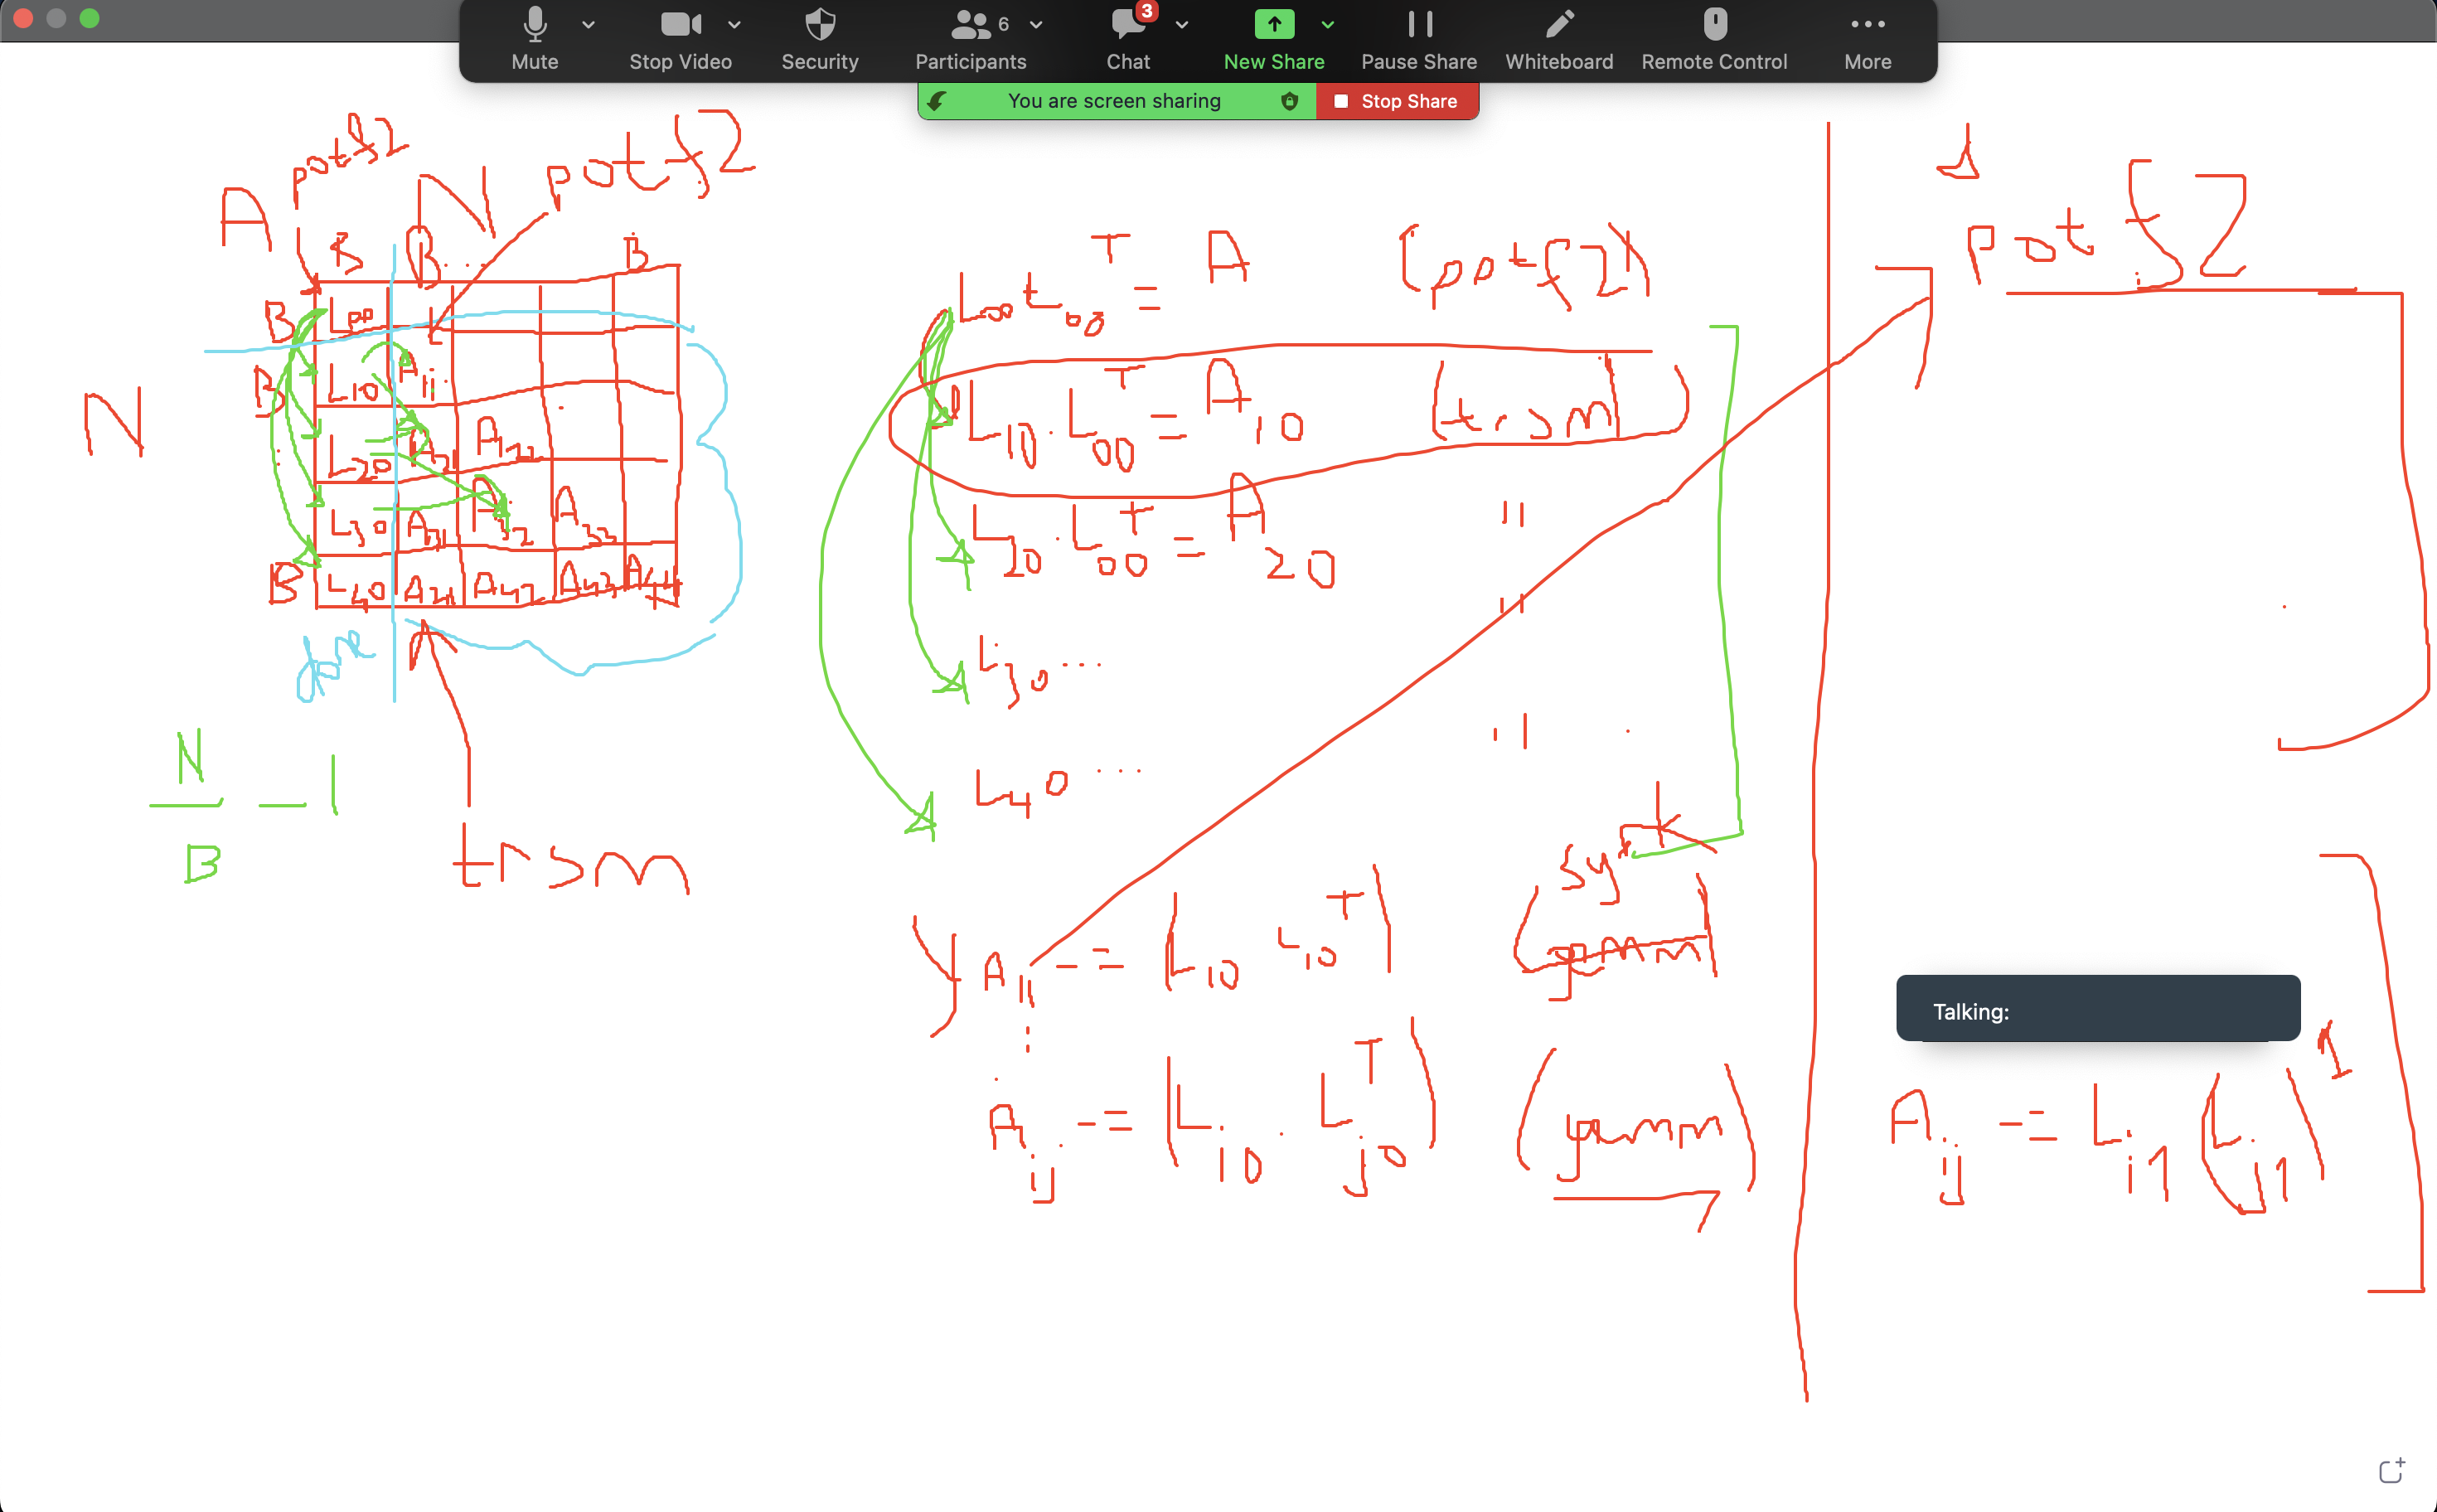 3
6
Mute
Stop Video
Security
Participants
Chat
New Share
Pause Share
Whiteboard
Remote Control
More
You are screen sharing
Stop Share
A
potf2
N
potf2
B B .... B
B L00
B L10 A11
L20 A21 A22
L30 A31 A32 A33
B L40 A41 A42 A43 A44
N
done
N/B - 1
trsm
L00 L00^T = A (potf2)
L10 · L00^T = A10 (trsm)
L20 · L00^T = A20 "
L30 ... "
L40 ... "
syrk
A11 -= (L10 L10^T) (gemm)
Aij -= (Li0 · Lj0^T) (gemm)
1
potf2
Talking:
Aij -= Li1 (Lj1)^T